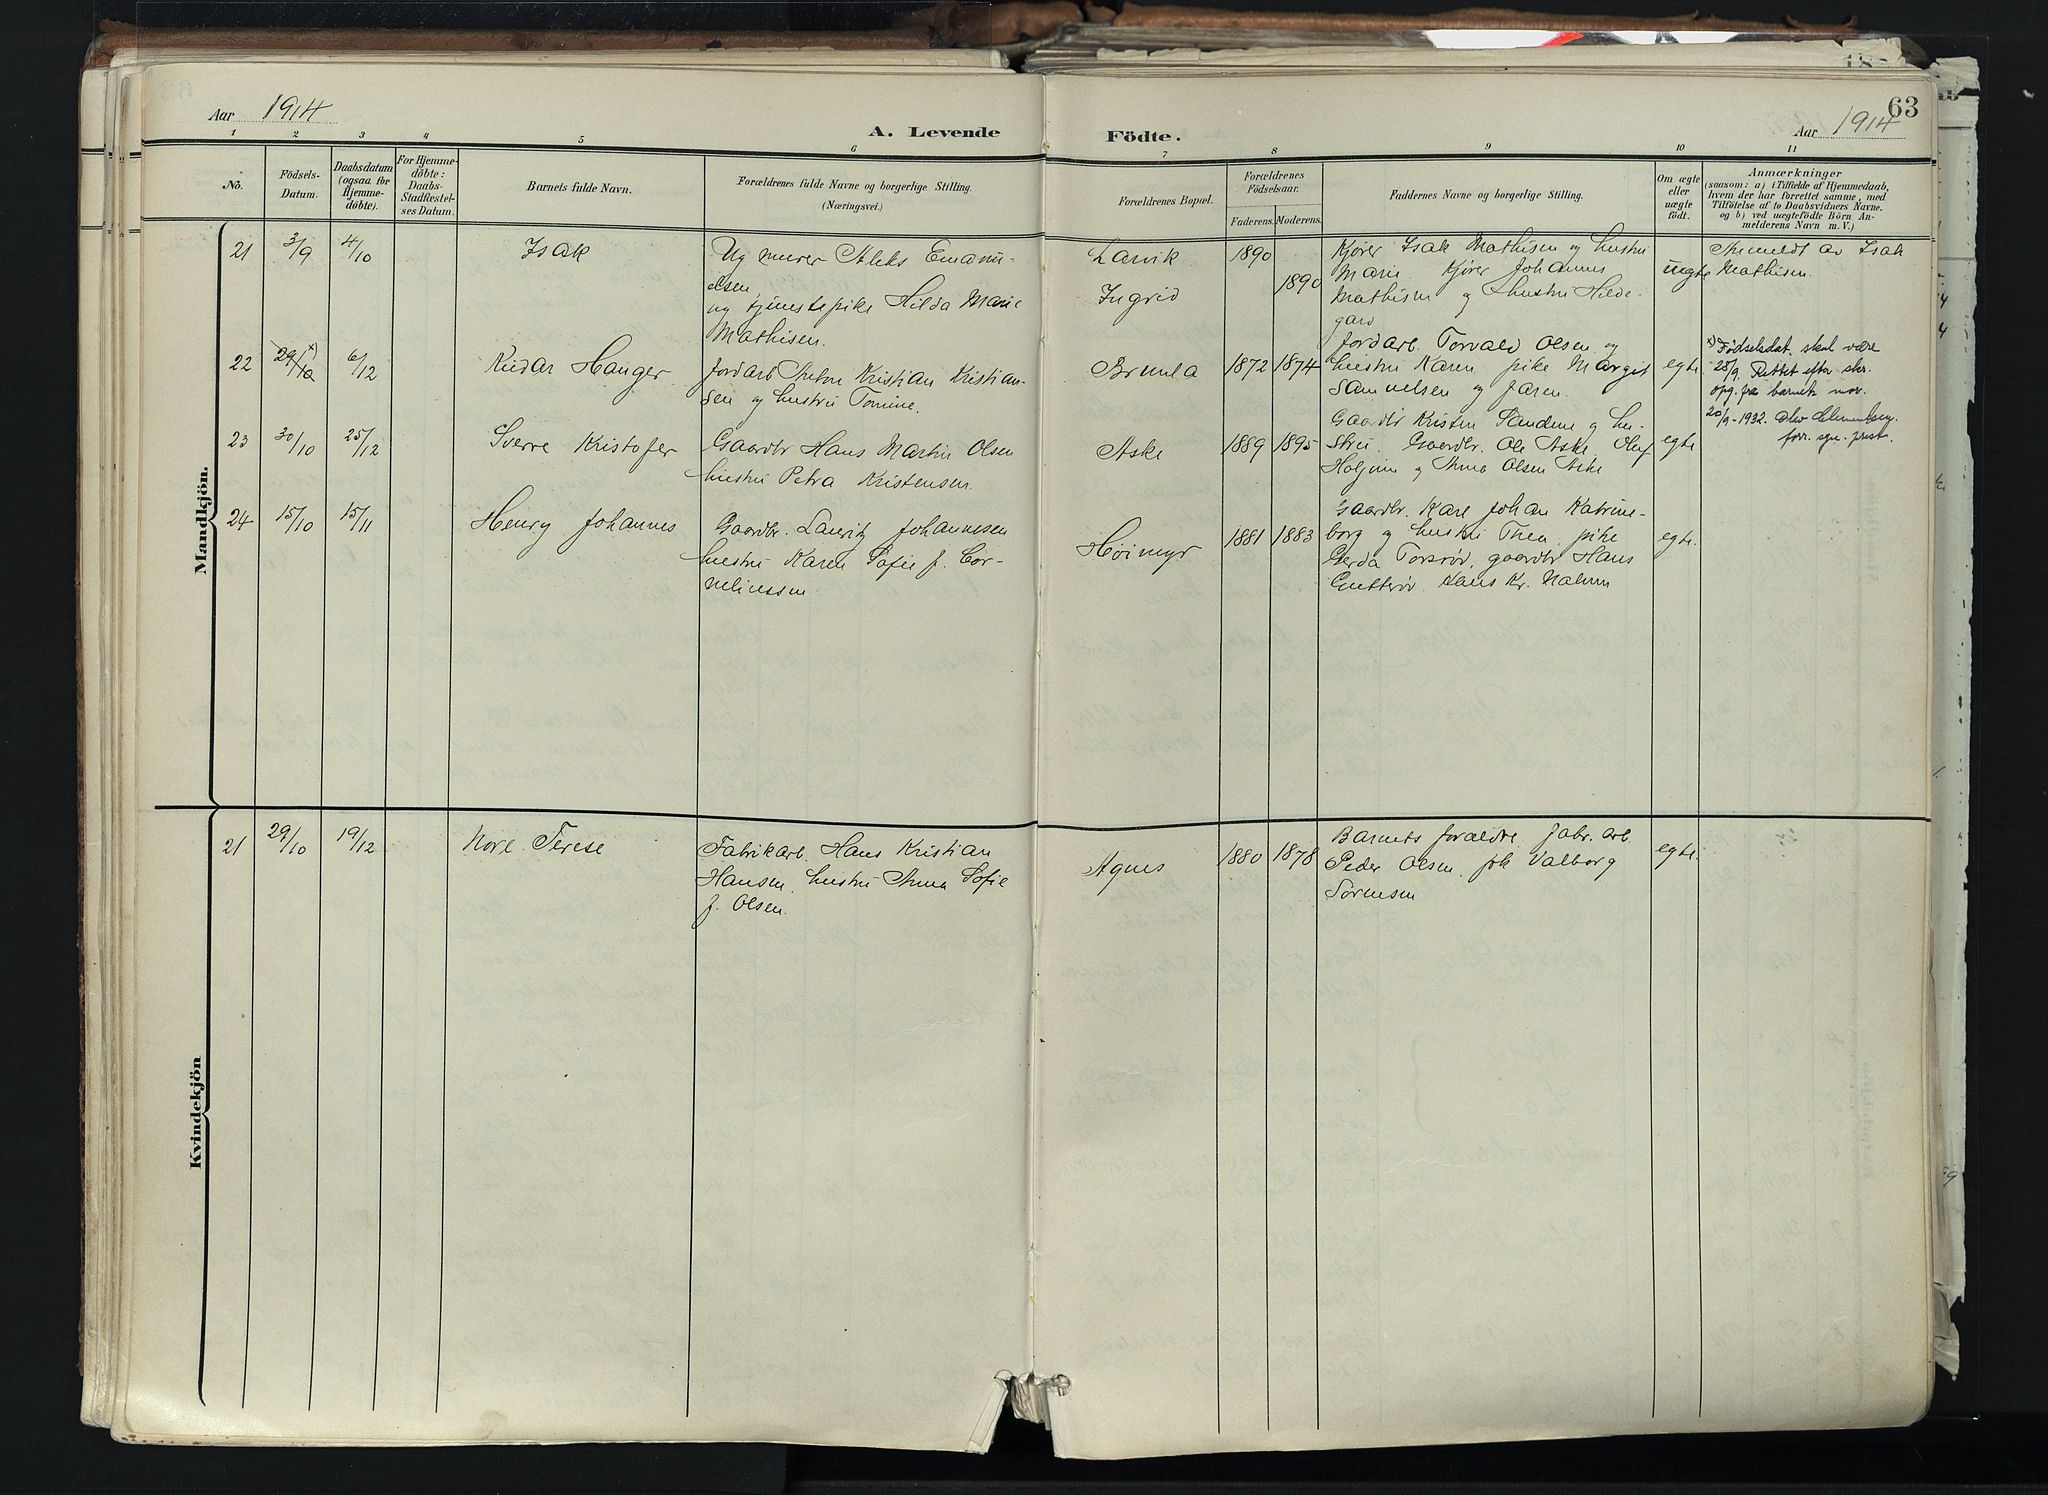 Aar 1914
A. Levende
Födte.
Aar 1914
63
1 2 3 4 5 6 7 8 9 10 11
No.
Födsels-
Datum.
Daabsdatum
(ogsaa for
Hjemme-
döbte).
For Hjemme-
döbte:
Daabs-
Stadfæstel-
ses Datum.
Barnets fulde Navn.
Forældrenes fulde Navne og borgerlige Stilling.
(Næringsvei.)
Forældrenes Bopæl.
Forældrenes
Födselsaar.
Faderens.
Moderens.
Faddernes Navne og borgerlige Stilling.
Om ægte
eller
uægte
födt.
Anmærkninger
(saasom: a) i Tilfælde af Hjemmedaab,
hvem der har forrettet samme, med
Tilföielse af to Daabsvidners Navne.
og b) ved uægtefödte Börn An-
melderens Navn m. V.)
Mandkjön.
21 3/9 4/10 Isak
Ug murer Aleks Emanu-
elsen
ug tjenestepike Hilda Marie
Mathisen.
Larvik
Ingrid
1890
1890
Kjører Isak Mathisen og hustru
Marie Kjører Johannes
Mathisen og hustru Hilde-
gard
uegte
Anmeldt av Isak
Mathisen.
22 29/10 x) 6/12 Reidar Hauger
Jordarb Anton Kristian Kristian-
sen og hustru Tomine.
Brunla
1872 1874
Jordarb. Torvald Olsen og
hustru Karen pike Margit
Samuelsen og Jaren.
egte
x) Födselsdat. skal være
25/9. Rettet efter skr.
opg. fra barnets mor.
20/9-1932.
prest.
23 30/10 25/12 Sverre Kristofer
Gaardbr Hans Martin Olsen
hustru Petra Kristensen.
Aske
1889 1895
Gaardbr Kristen Sandene og hu-
stru. Gaardbr. Ole Aske, Oluf
og Anna Olsen Aske
egte
24 15/10 15/11 Henry Johannes
Gaardbr. Lauritz Johannesen
hustru Karen Sofie f. Cor-
neliussen
Höimyr
1881 1883
Gaardbr. Karl Johan Katrine-
borg og hustru Thea, pike
Gerda Torsrød, gaardbr Hans
Hans Kr. Nalum
egte.
Kvindekjön
21 29/10 19/12 Kore Terese
Fabrikarb. Hans Kristian
Hansen, hustru Anna Sofie
f. Olsen.
Agnes
1880 1878
Barnets forældre, fabr. arb.
Peder Olsen, frk Valborg
Sørensen
egte.